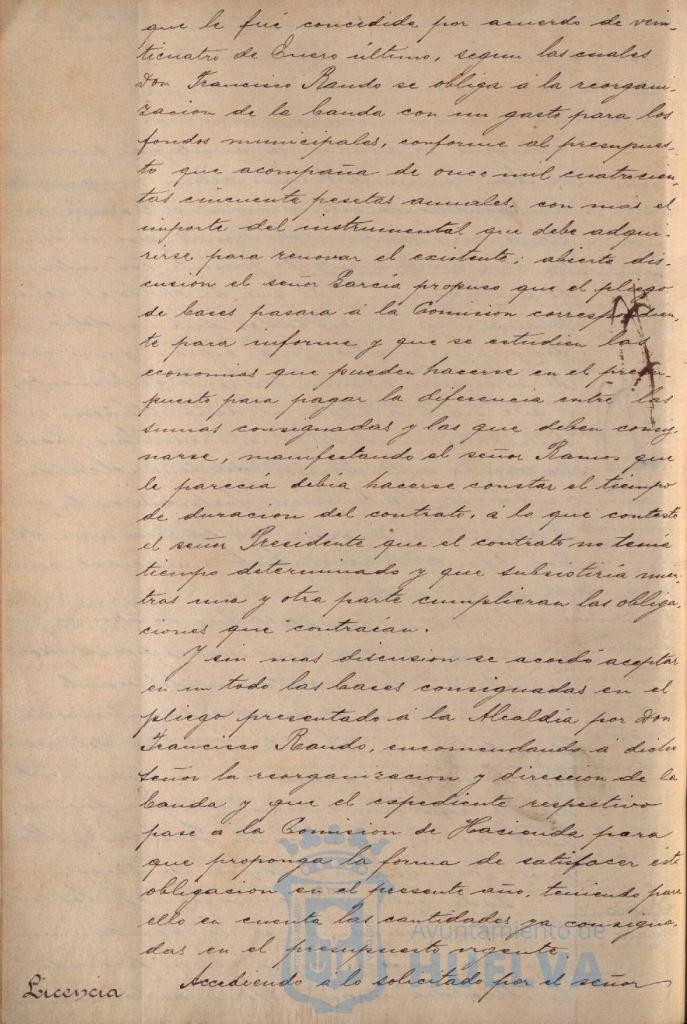 que le fué concedida por acuerdo de vein-
ticuatro de Enero último, segun las cuales
Don Francisco Rando se obliga á la reorgani-
zacion de la banda con un gasto para los
fondos municipales, conforme al presupues-
to que acompaña de once mil cuatrocien-
tas cincuenta pesetas anuales, con mas el
importe del instrumental que debe adqui-
rirse para renovar el existente; abierta dis-
cusion el señor García propuso que el pliego
de bases pasara á la Comision correspondien-
te para informe y que se estudien las
economias que pueden hacerse en el presu-
puesto para pagar la diferencia entre las
sumas consignadas y las que deben consig-
narse, manifestando el señor Ramos que
le parecía debía hacerse constar el tiempo
de duracion del contrato, á lo que contestó
el señor Presidente que el contrato no tenía
tiempo determinado y que subsistiría mien-
tras una y otra parte cumplieran las obliga-
ciones que contraían.
Y sin mas discusion se acordó aceptar
en un todo las bases consignadas en el
pliego presentado á la Alcaldía por Don
Francisco Rando, encomendando á dicho
señor la reorganizacion y direccion de la
banda y que el expediente respectivo
pase á la Comision de Hacienda para
que proponga la forma de satisfacer esta
obligacion en el presente año, teniendo para
ello en cuenta las cantidades ya consigna-
das en el presupuesto vigente.
Licencia Accediendo á lo solicitado por el señor
Ayuntamiento de
HUELVA